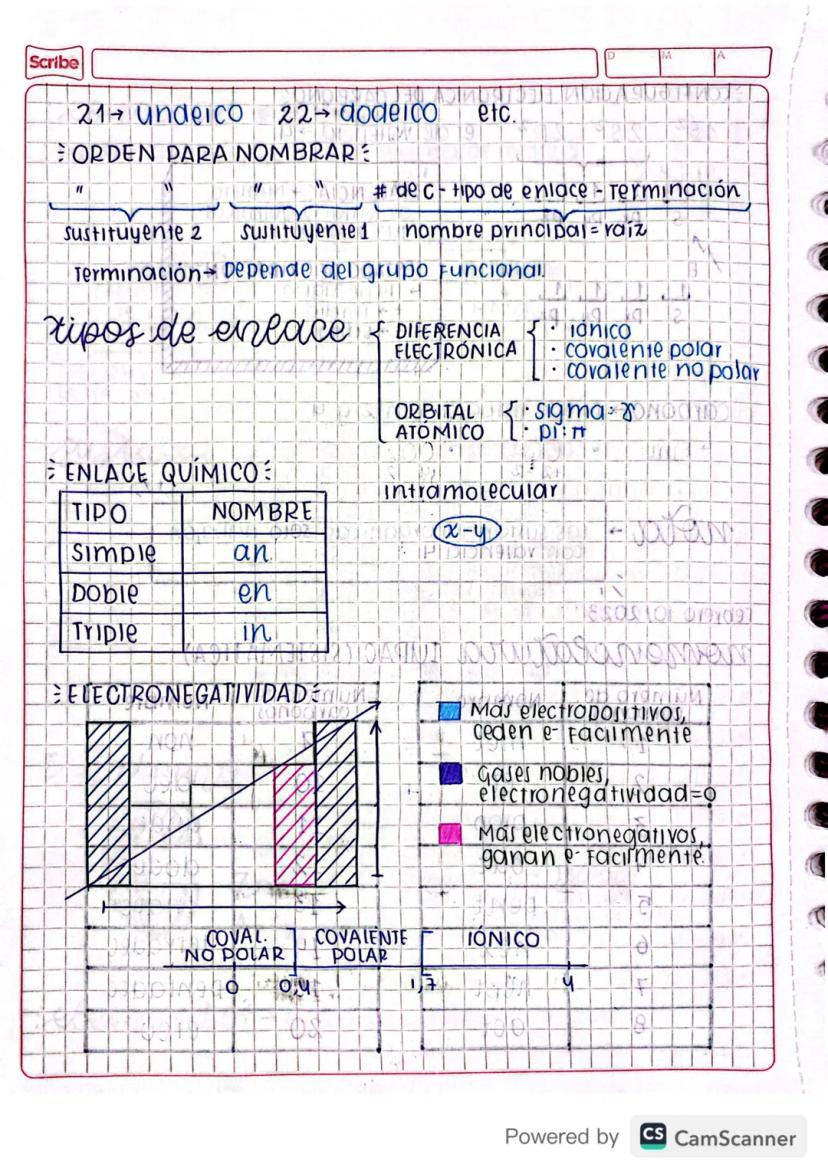 Scribe
D M A
21→ undeico 22→ dodeico etc.
ORDEN PARA NOMBRAR
" " " " # de C - tipo de enlace - Terminación
sustituyente 2 sustituyente 1 nombre principal = raíz
Terminación→ Depende del grupo Funcional.
tipos de enlace
DIFERENCIA ELECTRÓNICA
· iónico
· covalente polar
· covalente no polar
ORBITAL ATÓMICO
· sigma: γ
· pi: π
intramolecular
x-y
ENLACE QUÍMICO
TIPO NOMBRE
Simple an
Doble en
Triple in
ELECTRONEGATIVIDAD
Más electropositivos,
ceden e- Facilmente
Gases nobles,
electronegatividad=0
Más electronegativos,
ganan e- Facilmente.
COVAL. NO POLAR
COVALENTE POLAR
IÓNICO
0 0,4 1,7 4
Powered by CS CamScanner